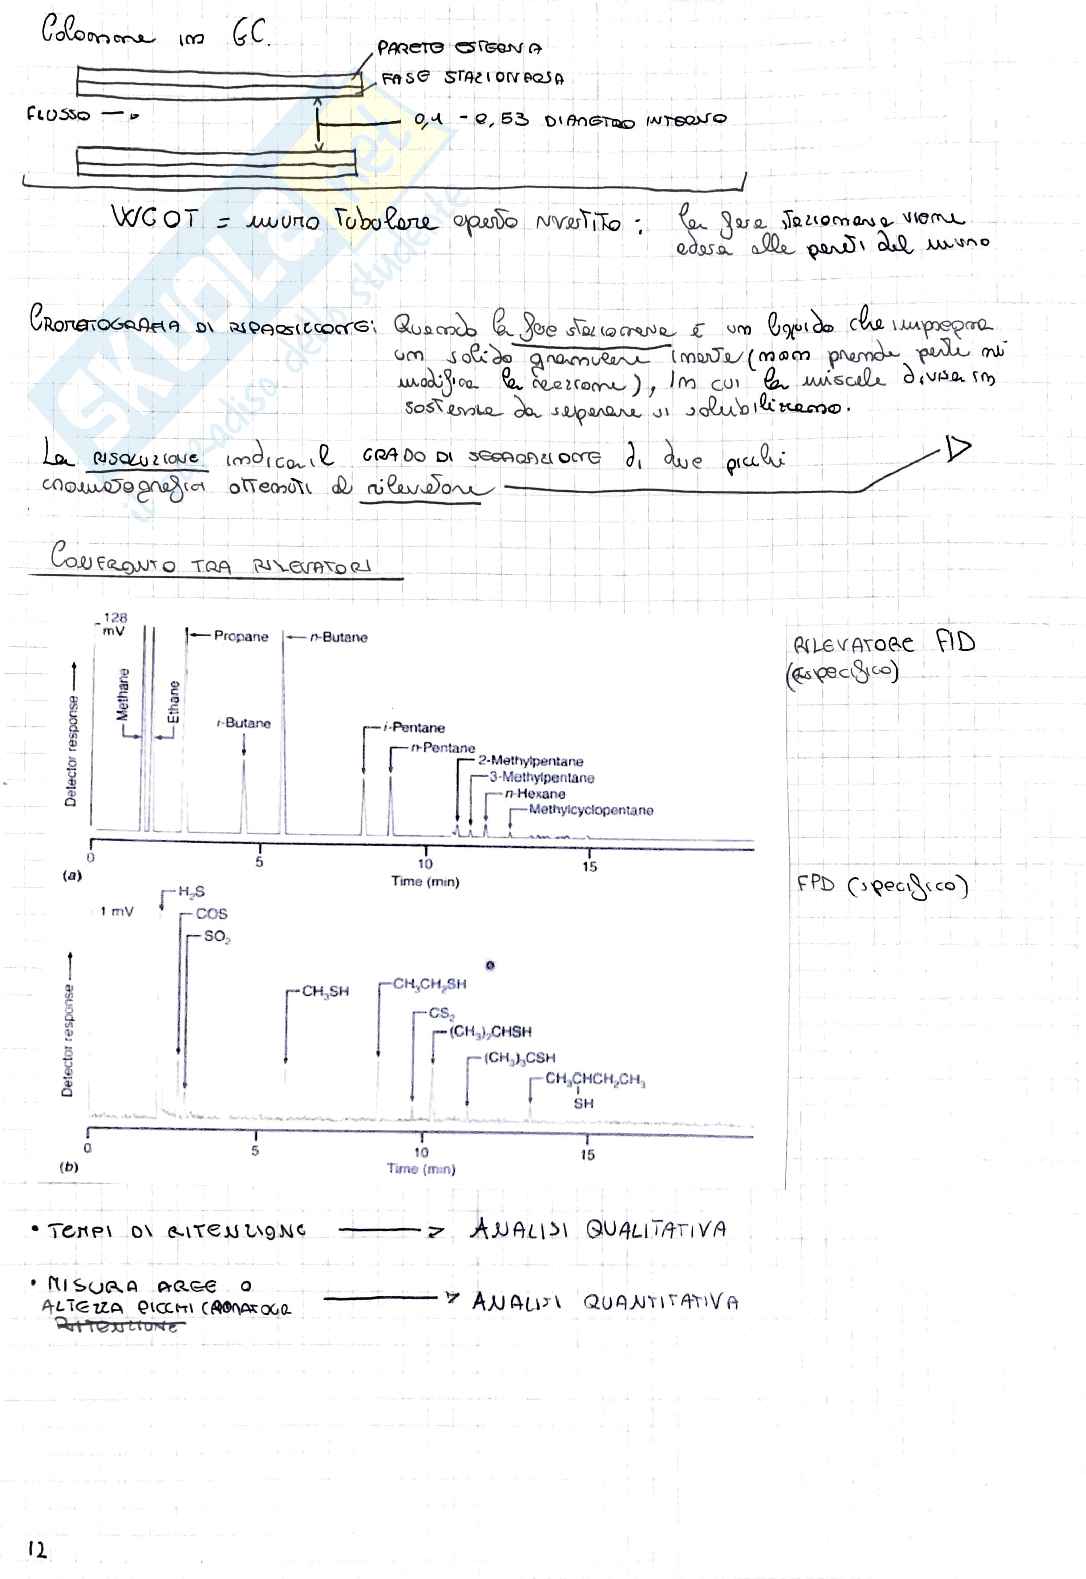 Colonne in GC.
PARETE ESTERNA
FASE STAZIONARIA
FLUSSO
0,1 - 0,53 DIAMETRO INTERNO
WCOT = muro tubolare aperto rivestito : la fase stazionaria viene
adesa alle pareti del muro
CROMATOGRAFIA DI RIPARTIZIONE: Quando la fase stazionaria è un liquido che impregna
un solido granulare inerte (non prende parte nè
modifica la reazione), in cui la miscela divisa in
sostanze da separare si solubilizzano.
La RISOLUZIONE indica il GRADO DI SEPARAZIONE di due picchi
cromatografici ottenuti al rilevatore
CONFRONTO TRA RILEVATORI
128
mV
Propane
n-Butane
RILEVATORE FID
(aspecifico)
Methane
Ethane
i-Butane
i-Pentane
n-Pentane
2-Methylpentane
3-Methylpentane
n-Hexane
Methylcyclopentane
Detector response
0 5 10 15
(a)
Time (min)
FPD (specifico)
1 mV
H₂S
COS
SO₂
CH₃SH
CH₃CH₂SH
CS₂
(CH₃)₂CHSH
(CH₃)₃CSH
CH₃CHCH₂CH₃
SH
Detector response
0 5 10 15
(b)
Time (min)
• TEMPI DI RITENZIONE → ANALISI QUALITATIVA
• MISURA AREE O
ALTEZZA PICCHI CROMATOGR → ANALISI QUANTITATIVA
RITENZIONE
12
SKUOLA.net
il paradiso dello studente